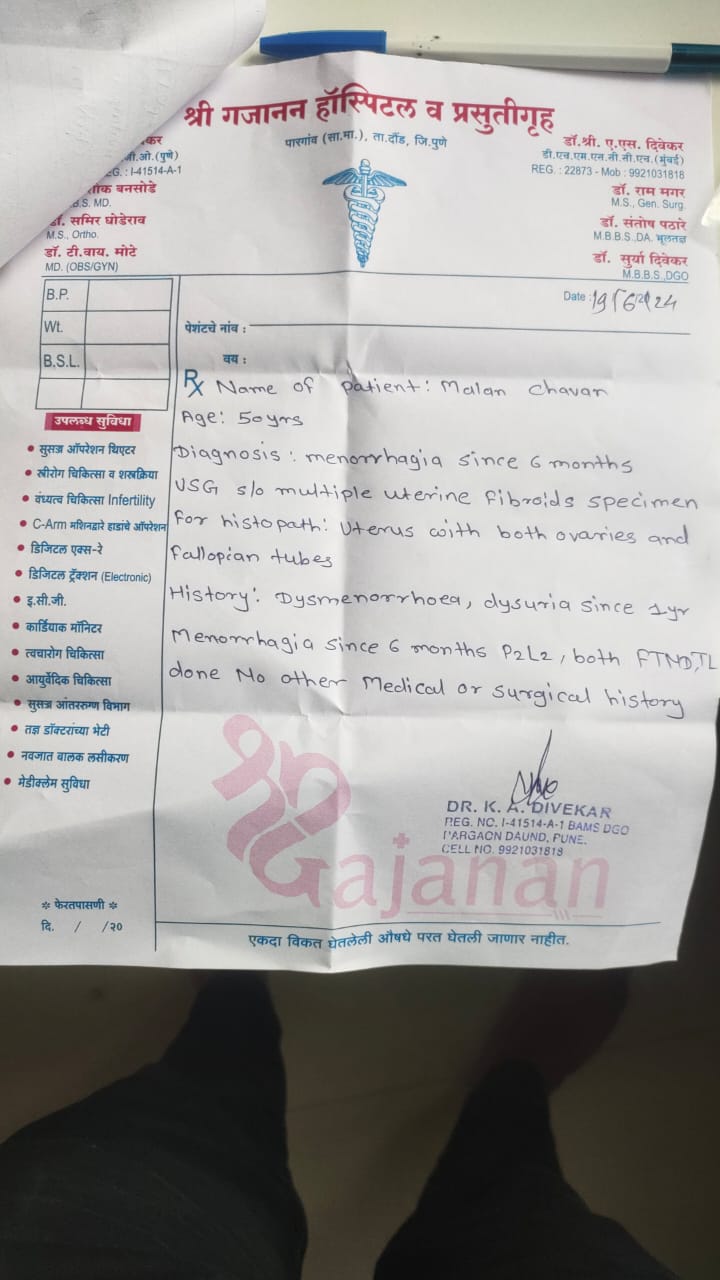 श्री गजानन हॉस्पिटल व प्रसुतीगृह
पारगांव (सा.मा.), ता.दौंड, जि.पुणे
कर
जी.ओ.(पुणे)
G. : I-41514-A-1
शोक बनसोडे
B.S. MD.
डॉ. समिर घोडेराव
M.S., Ortho.
डॉ. टी.वाय. मोटे
MD. (OBS/GYN)
डॉ.श्री. ए.एस. दिवेकर
डी.एच.एम.एस.सी.सी.एच.(मुंबई)
REG. : 22873 - Mob : 9921031818
डॉ. राम मगर
M.S., Gen. Surg.
डॉ. संतोष पठारे
M.B.B.S.,DA. भूलतज्ञ
डॉ. सुर्या दिवेकर
M.B.B.S.,DGO
B.P.
Wt.
B.S.L.
Date : 19/6/24
पेशंटचे नांव :
वय :
Rx Name of patient: Malan Chavan
Age: 50yrs
Diagnosis: menorrhagia since 6 months
USG s/o multiple uterine fibroids specimen
For histopath: Uterus with both ovaries and
fallopian tubes
History: Dysmenorrhoea, dysuria since 1yr
Menorrhagia since 6 months P2L2, both FTND, TL
done No other Medical or surgical history
उपलब्ध सुविधा
• सुसज्ज ऑपरेशन थिएटर
• स्त्रीरोग चिकित्सा व शस्त्रक्रिया
• वंध्यत्व चिकित्सा Infertility
• C-Arm मशिनद्वारे हाडांचे ऑपरेशन
• डिजिटल एक्स-रे
• डिजिटल ट्रॅक्शन (Electronic)
• इ.सी.जी.
• कार्डियाक मॉनिटर
• त्वचारोग चिकित्सा
• आयुर्वेदिक चिकित्सा
• सुसज्ज आंतररुग्ण विभाग
• तज्ञ डॉक्टरांच्या भेटी
• नवजात बालक लसीकरण
• मेडीक्लेम सुविधा
DR. K. A. DIVEKAR
REG. NO. I-41514-A-1 BAMS DGO
PARGAON DAUND, PUNE.
CELL NO. 9921031818
श्री
Gajanan
* फेरतपासणी *
दि. / /२०
एकदा विकत घेतलेली औषधे परत घेतली जाणार नाहीत.